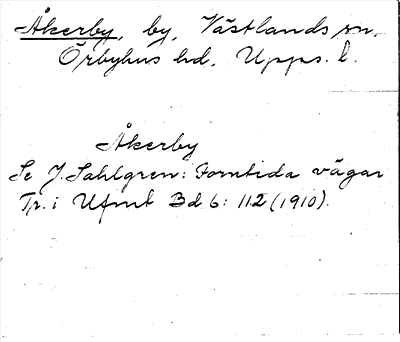 Åkerby, by, Västlands sn.
Örbyhus hd, Upps. l.
Åkerby
Se J. Sahlgren: Forntida vägar
Tr. i Ufmt Bd 6: 112 (1910).